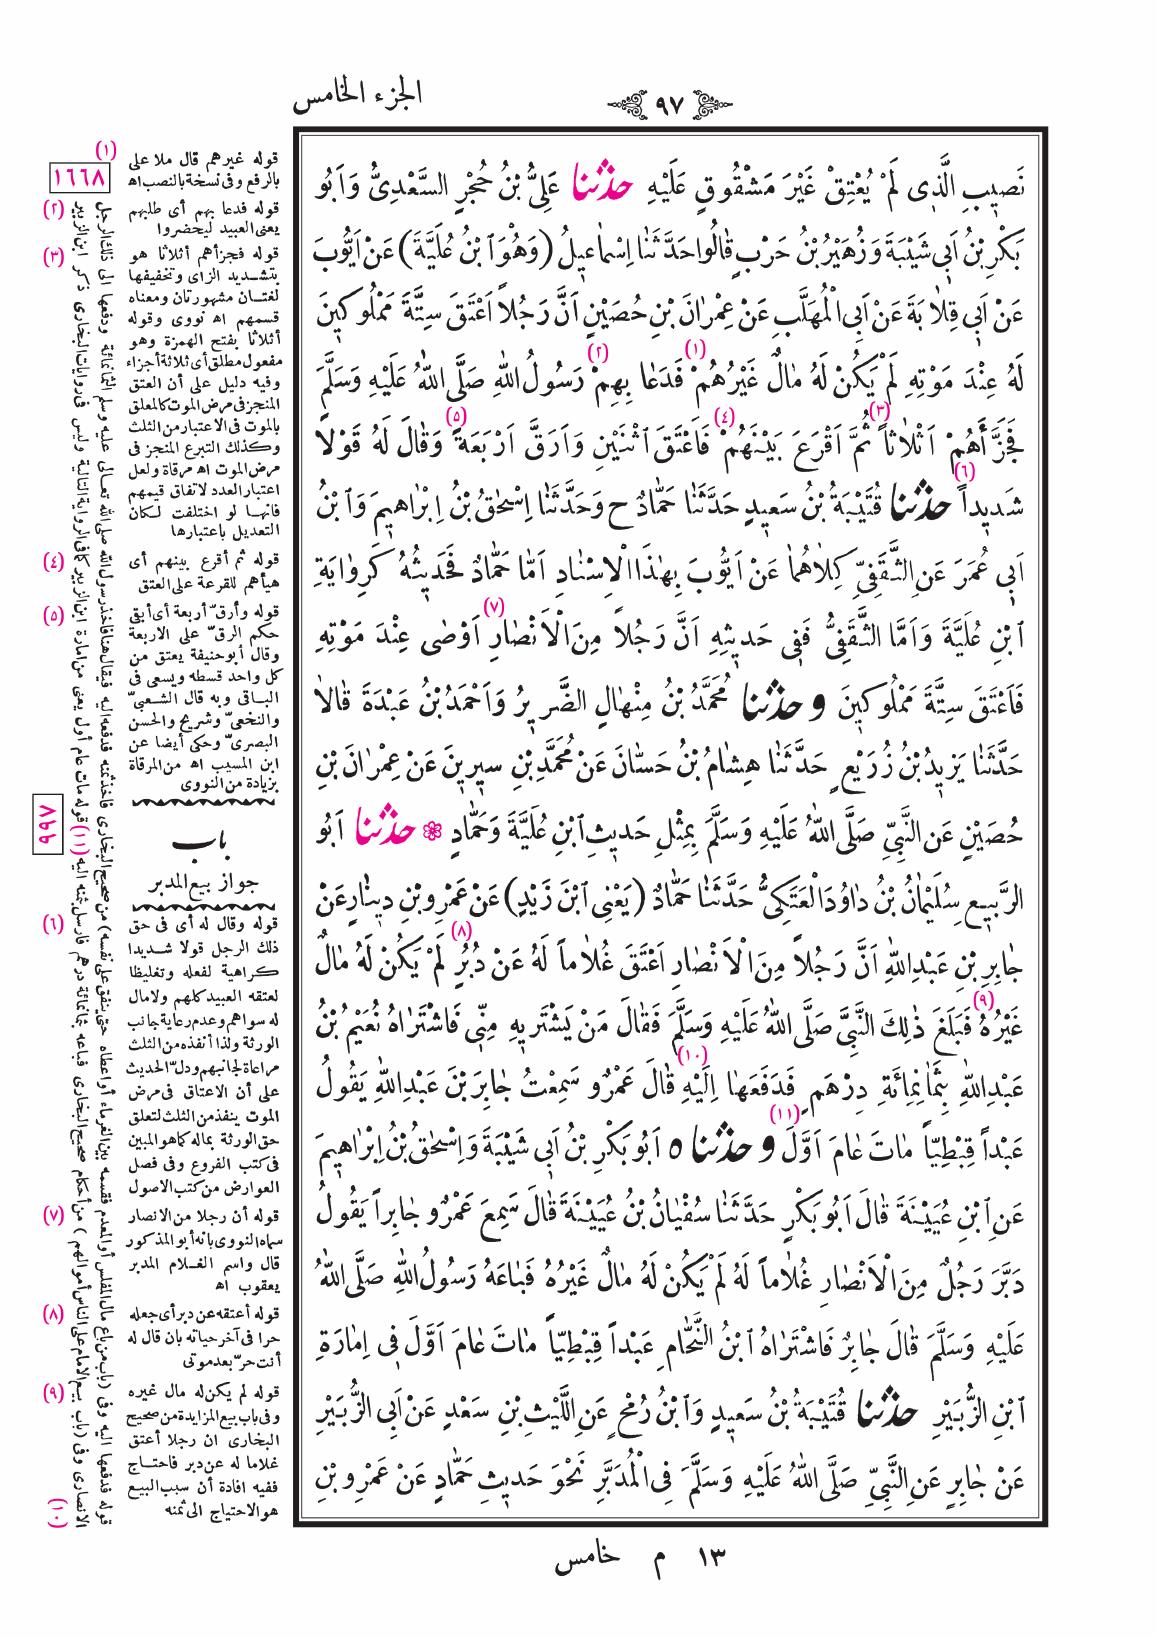 الجزء الخامس
٩٧
نَصيبِ الَّذى لَمْ يُعْتِقْ غَيْرَ مَشْقُوقٍ عَلَيْهِ حدثنا عَلِىُّ بْنُ حُجْرٍ السَّعْدِىُّ وَاَبُو
بَكْرِ بْنُ اَبى شَيْبَةَ وَزُهَيْرُ بْنُ حَرْبٍ قٰالُوا حَدَّثَنٰا اِسْمٰاعيلُ (وَهُوَ ٱبْنُ عُلَيَّةَ) عَنْ اَيُّوبَ
عَنْ اَبى قِلاٰبَةَ عَنْ اَبِى الْمُهَلَّبِ عَنْ عِمْرٰانَ بْنِ حُصَيْنٍ اَنَّ رَجُلاً اَعْتَقَ سِتَّةَ مَمْلُوكينَ
لَهُ عِنْدَ مَوْتِهِ لَمْ يَكُنْ لَهُ مٰالٌ غَيْرُهُمْ (١) فَدَعٰا بِهِمْ (٢) رَسُولُ اللهِ صَلَّى اللهُ عَلَيْهِ وَسَلَّمَ
فَجَزَّأَهُمْ اَثْلاٰثاً (٣) ثُمَّ اَقْرَعَ بَيْنَهُمْ (٤) فَاَعْتَقَ ٱثْنَيْنِ وَاَرَقَّ اَرْبَعَةً (٥) وَقٰالَ لَهُ قَوْلاً
شَديداً (٦) حدثنا قُتَيْبَةُ بْنُ سَعيدٍ حَدَّثَنٰا حَمّٰادٌ ح وَحَدَّثَنٰا اِسْحٰقُ بْنُ اِبْرٰاهيمَ وَٱبْنُ
اَبى عُمَرَ عَنِ الثَّقَفِىِّ كِلاٰهُمٰا عَنْ اَيُّوبَ بِهٰذَا الْاِسْنٰادِ اَمّٰا حَمّٰادٌ فَحَديثُهُ كَرِوٰايَةِ
ٱبْنِ عُلَيَّةَ وَاَمَّا الثَّقَفِىُّ فَفى حَديثِهِ اَنَّ رَجُلاً مِنَ الْاَنْصٰارِ (٧) اَوْصٰى عِنْدَ مَوْتِهِ
فَاَعْتَقَ سِتَّةَ مَمْلُوكينَ وحدثنا مُحَمَّدُ بْنُ مِنْهٰالٍ الضَّريرُ وَاَحْمَدُ بْنُ عَبْدَةَ قٰالاٰ
حَدَّثَنٰا يَزيدُ بْنُ زُرَيْعٍ حَدَّثَنٰا هِشٰامُ بْنُ حَسّٰانَ عَنْ مُحَمَّدِ بْنِ سيرينَ عَنْ عِمْرٰانَ بْنِ
حُصَيْنٍ عَنِ النَّبِىِّ صَلَّى اللهُ عَلَيْهِ وَسَلَّمَ بِمِثْلِ حَديثِ ٱبْنِ عُلَيَّةَ وَحَمّٰادٍ ❁ حدثنا اَبُو
الرَّبيعِ سُلَيْمٰانُ بْنُ دٰاوُدَ الْعَتَكِىُّ حَدَّثَنٰا حَمّٰادٌ (يَعْنِى ٱبْنَ زَيْدٍ) عَنْ عَمْرِو بْنِ دينٰارٍ عَنْ
جٰابِرِ بْنِ عَبْدِ اللهِ اَنَّ رَجُلاً مِنَ الْاَنْصٰارِ اَعْتَقَ غُلاٰماً لَهُ عَنْ دُبُرٍ (٨) لَمْ يَكُنْ لَهُ مٰالٌ
غَيْرُهُ (٩) فَبَلَغَ ذٰلِكَ النَّبِىَّ صَلَّى اللهُ عَلَيْهِ وَسَلَّمَ فَقٰالَ مَنْ يَشْتَريهِ مِنّى فَاشْتَرٰاهُ نُعَيْمُ بْنُ
عَبْدِ اللهِ بِثَمٰانِمِائَةِ دِرْهَمٍ فَدَفَعَهٰا اِلَيْهِ (١٠) قٰالَ عَمْرٌو سَمِعْتُ جٰابِرَ بْنَ عَبْدِ اللهِ يَقُولُ
عَبْداً قِبْطِيّاً مٰاتَ عٰامَ اَوَّلَ (١١) وحدثنا ٥ اَبُو بَكْرِ بْنُ اَبى شَيْبَةَ وَاِسْحٰقُ بْنُ اِبْرٰاهيمَ
عَنِ ٱبْنِ عُيَيْنَةَ قٰالَ اَبُو بَكْرٍ حَدَّثَنٰا سُفْيٰانُ بْنُ عُيَيْنَةَ قٰالَ سَمِعَ عَمْرٌو جٰابِراً يَقُولُ
دَبَّرَ رَجُلٌ مِنَ الْاَنْصٰارِ غُلاٰماً لَهُ لَمْ يَكُنْ لَهُ مٰالٌ غَيْرُهُ فَبٰاعَهُ رَسُولُ اللهِ صَلَّى اللهُ
عَلَيْهِ وَسَلَّمَ قٰالَ جٰابِرٌ فَاشْتَرٰاهُ ٱبْنُ النَّحّٰامِ عَبْداً قِبْطِيّاً مٰاتَ عٰامَ اَوَّلَ فى اِمٰارَةِ
ٱبْنِ الزُّبَيْرِ حدثنا قُتَيْبَةُ بْنُ سَعيدٍ وَٱبْنُ رُمْحٍ عَنِ اللَّيْثِ بْنِ سَعْدٍ عَنْ اَبِى الزُّبَيْرِ
عَنْ جٰابِرٍ عَنِ النَّبِىِّ صَلَّى اللهُ عَلَيْهِ وَسَلَّمَ فِى الْمُدَبَّرِ نَحْوَ حَديثِ حَمّٰادٍ عَنْ عَمْرِو بْنِ
١٣ م خامس
(١) قوله غيرهم قال ملا على
بالرفع وفى نسخة بالنصب اه
١٦٦٨
(٢) قوله فدعا بهم أى طلبهم
يعنى العبيد ليحضروا
(٣) قوله فجزأهم أثلاثا هو
بتشديد الزاى وتخفيفها
لغتان مشهورتان ومعناه
قسمهم اه نووى وقوله
أثلاثا بفتح الهمزة وهو
مفعول مطلق أى ثلاثة أجزاء
وفيه دليل على أن العتق
المنجز فى مرض الموت كالمعلق
بالموت فى الاعتبار من الثلث
وكذلك التبرع المنجز فى
مرض الموت اه مرقاة ولعل
اعتبار العدد لاتفاق قيمهم
فانها لو اختلفت لكان
التعديل باعتبارها
(٤) قوله ثم أقرع بينهم أى
هيأهم للقرعة على العتق
(٥) قوله وأرقّ أربعة أى أبقى
حكم الرقّ على الاربعة
وقال أبو حنيفة يعتق من
كل واحد قسطه ويسعى فى
الباقى وبه قال الشعبىّ
والنخعىّ وشريح والحسن
البصرىّ وحكى أيضا عن
ابن المسيب اه من المرقاة
بزيادة من النووى
باب
جواز بيع المدبر
(٦) قوله وقال له أى فى حق
ذلك الرجل قولا شديدا
كراهية لفعله وتغليظا
لعتقه العبيد كلهم ولا مال
له سواهم وعدم رعاية جانب
الورثة ولذا أنفذه من الثلث
مراعاة لجانبهم ودلّ الحديث
على أن الاعتاق فى مرض
الموت ينفذ من الثلث لتعلق
حق الورثة بماله كما هو المبين
فى كتب الفروع وفى فصل
العوارض من كتب الاصول
(٧) قوله أن رجلا من الانصار
سماه النووى بانه أبو المذكور
قال واسم الغلام المدبر
يعقوب اه
(٨) قوله أعتقه عن دبر أى جعله
حرا فى آخر حياته بان قال له
أنت حرّ بعد موتى
(٩) قوله لم يكن له مال غيره
وفى باب بيع المزايدة من صحيح
البخارى ان رجلا أعتق
غلاما له عن دبر فاحتاج
ففيه افادة أن سبب البيع
هو الاحتياج الى ثمنه
(١٠) قوله فدفعها اليه وفى (باب من باع مال المفلس أو المعدم فقسمه بين الغرماء أو أعطاه حتى ينفق على نفسه) من صحيح البخارى فاخذ ثمنه فدفعه اليه فيقال هنا فاخذ رسول الله صلى الله تعالى عليه وسلم الثمانمائة ودفعها الى ذلك الرجل
الانصارى وفى (باب بيع الامام على الناس أموالهم) من أحكام صحيح البخارى فباعه بثمانمائة درهم فارسل بثمنه اليه (١١) قوله مات عام أول يعنى من امارة ابن الزبير كما فى الرواية التالية وليس فى روايات البخارى ذكر ابن الزبير